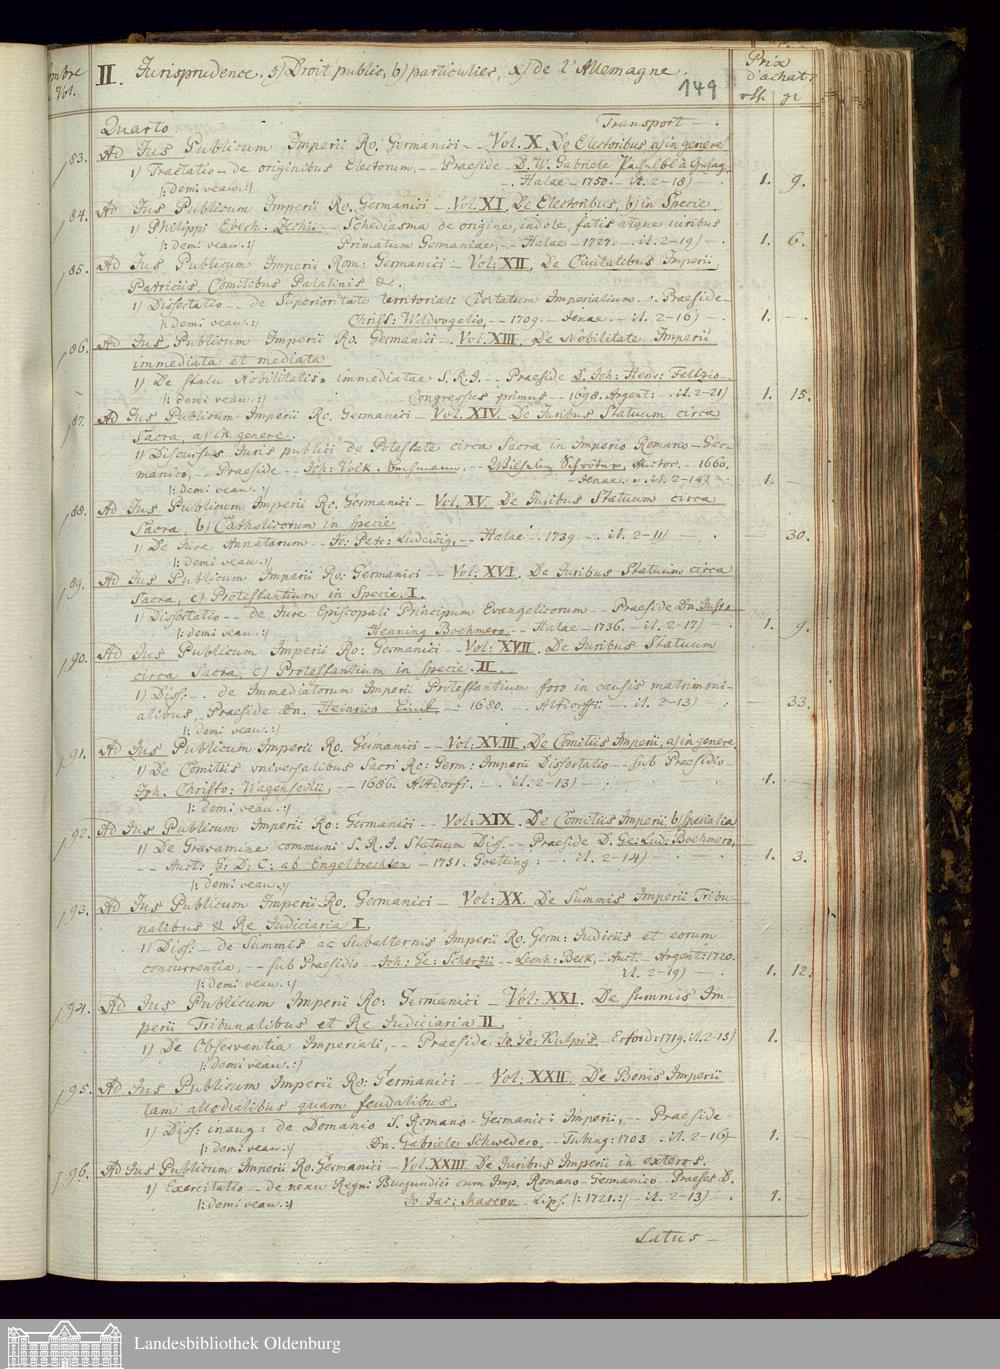 II. Jurisprudence. 3) Droit public, b) particulier, x) de l'Allemagne.
149
Prix d'achat
rth. gr.
Quarto Transport — .
183. Ad Jus Publicum Imperii Ro. Germanici - - Vol. X. De Electoribus a) in genere
1) Tractatio - de originibus Electorum, - - Praeside D. W. Gabriele
- . Halae - 1750. - il. 2-18) - . 1. 9.
|: demi veau. :|
184. Ad Jus Publicum Imperii Ro. Germanici - - Vol. XI. De Electoribus, b) in Specie.
1) Philippi Eberh: Zechi. - - Schediasma de origine, indole, fatis atque juribus
|: demi veau :| Primatum Germaniae, - - Halae - 1727. - il. 2-19) - . 1. 6.
185. Ad Jus Publicum Imperii Rom: Germanici - Vol: XII. De Civitatibus Imperii,
Patriciis, Comitibus Palatinis &.
1) Dissertatio - - de Superioritate territoriali Civitatum Imperialium. - . Praeside -
Christ: Wildvogelio, - - 1709. - Jenae. - il. 2-16) - . 1. - .
|: demi veau. :|
186. Ad Jus Publicum Imperii Ro. Germanici - . Vol: XIII. De Nobilitate Imperii
immediata et mediata
1) De statu Nobilitatis immediatae S. R. I. - - Praeside D. Joh: Henr: Feltzio -
|: demi veau. :| Congressus primus - - 1698. Argent: - . il. 2-21) 1. 15.
187. Ad Jus Publicum Imperii Ro. Germanici - Vol. XIV. De Juribus Statuum circa
Sacra, a) in genere.
1) Discursus Juris publici de Potestate circa Sacra in Imperio Romano - Ger-
manico, - - Praeside - - Joh: Volk. - - Wilhelm Schröter, Auctor. - 1660.
- Jenae. - . il. 2-14) - . 1. -
|: demi veau. :|
188. Ad Jus Publicum Imperii Ro. Germanici - Vol. XV. De Juribus Statuum circa
Sacra, b) Catholicorum in specie.
1) De Jure Annatarum - - Jo: Petr: Ludewig, - - Halae - . 1739. - . il. 2-11) - . - 30.
|: demi veau. :|
189. Ad Jus Publicum Imperii Ro: Germanici - - Vol: XVI. De Juribus Statuum circa
Sacra, c) Protestantium in Specie. I.
1) Dissertatio - - de Jure Episcopali Principum Evangelicorum - - Praeside Dn. Justo
|: demi veau. :| Henning Boehmero. - - Halae - 1736. - il. 2-17) - . 1. 9.
190. Ad Jus Publicum Imperii Ro: Germanici - - Vol: XVII. De Juribus Statuum
circa Sacra, c) Protestantium in Specie. II
1) Diss. - . de Immediatorum Imperii Protestantium foro in causis matrimoni-
alibus, Praeside Dn. Heinrico Linck, - : 1680. - . Altdorffii - . il. 2-13) - : - 33.
|: demi veau. :|
191. Ad Jus Publicum Imperii Ro. Germanici - - Vol: XVIII. De Comitiis Imperii, a) in genere.
1) De Comitiis universalibus Sacri Ro: Germ: Imperii Dissertatio - - sub Praesidio -
Joh. Christo: Wagenseilii, - - 1686. Altdorfi. - . il. 2-13) - . 1. -
|: demi veau. :|
192. Ad Jus Publicum Imperii Ro: Germanici - - Vol: XIX. De Comitiis Imperii, b) specialia
1) De Gravamine communi S. R. I. Statuum Diss. - - Praeside D. Ge: Lud: Boehmero,
- - Auct: G: D: C: ab Engelbrechten - 1751. Goetting: - . il. 2-14) - . 1. 3.
|: demi veau. :|
193. Ad Jus Publicum Imperii Ro. Germanici - Vol: XX. De Summis Imperii Tribu-
nalibus & Re Judiciaria I.
1) Diss: - de Summis ac Subalternis Imperii Ro. Germ: Judiciis et eorum
concurrentia, - - sub Praesidio - - Joh: Ge: Scherzii - - Leonh: Beck, - Auct. - Argent: 1720.
il. 2-19) - . 1. 12.
|: demi veau. :|
194. Ad Jus Publicum Imperii Ro: Germanici - Vol: XXI. De Summis Im-
perii Tribunalibus et Re Judiciaria II.
1) De Observantia Imperiali, - - Praeside Jo. Ge: Kulpis. - Erford: 1719. il. 2-15) 1.
|: demi veau. :|
195. Ad Jus Publicum Imperii Ro: Germanici - - Vol: XXII. De Bonis Imperii
tam allodialibus quam feudalibus.
1) Diss: inaug: de Domanio S. Romano-Germanici Imperii, - - Praeside
|: demi veau. :| Dn. Gabriele Schwedero, - Tubing: 1703. - il. 2-16) - 1. -
196. Ad Jus Publicum Imperii Ro. Germanici - Vol. XXIII. De Juribus Imperii in exteros.
1) Exercitatio - - de nexu Regni Burgundici cum Imp. Romano-Germanico - Praeses D.
|: demi veau. :| Jo. Jac: Mascov - Lips. |: 1721. :| - il. 2-13) - . 1. -
Latus -
Landesbibliothek Oldenburg